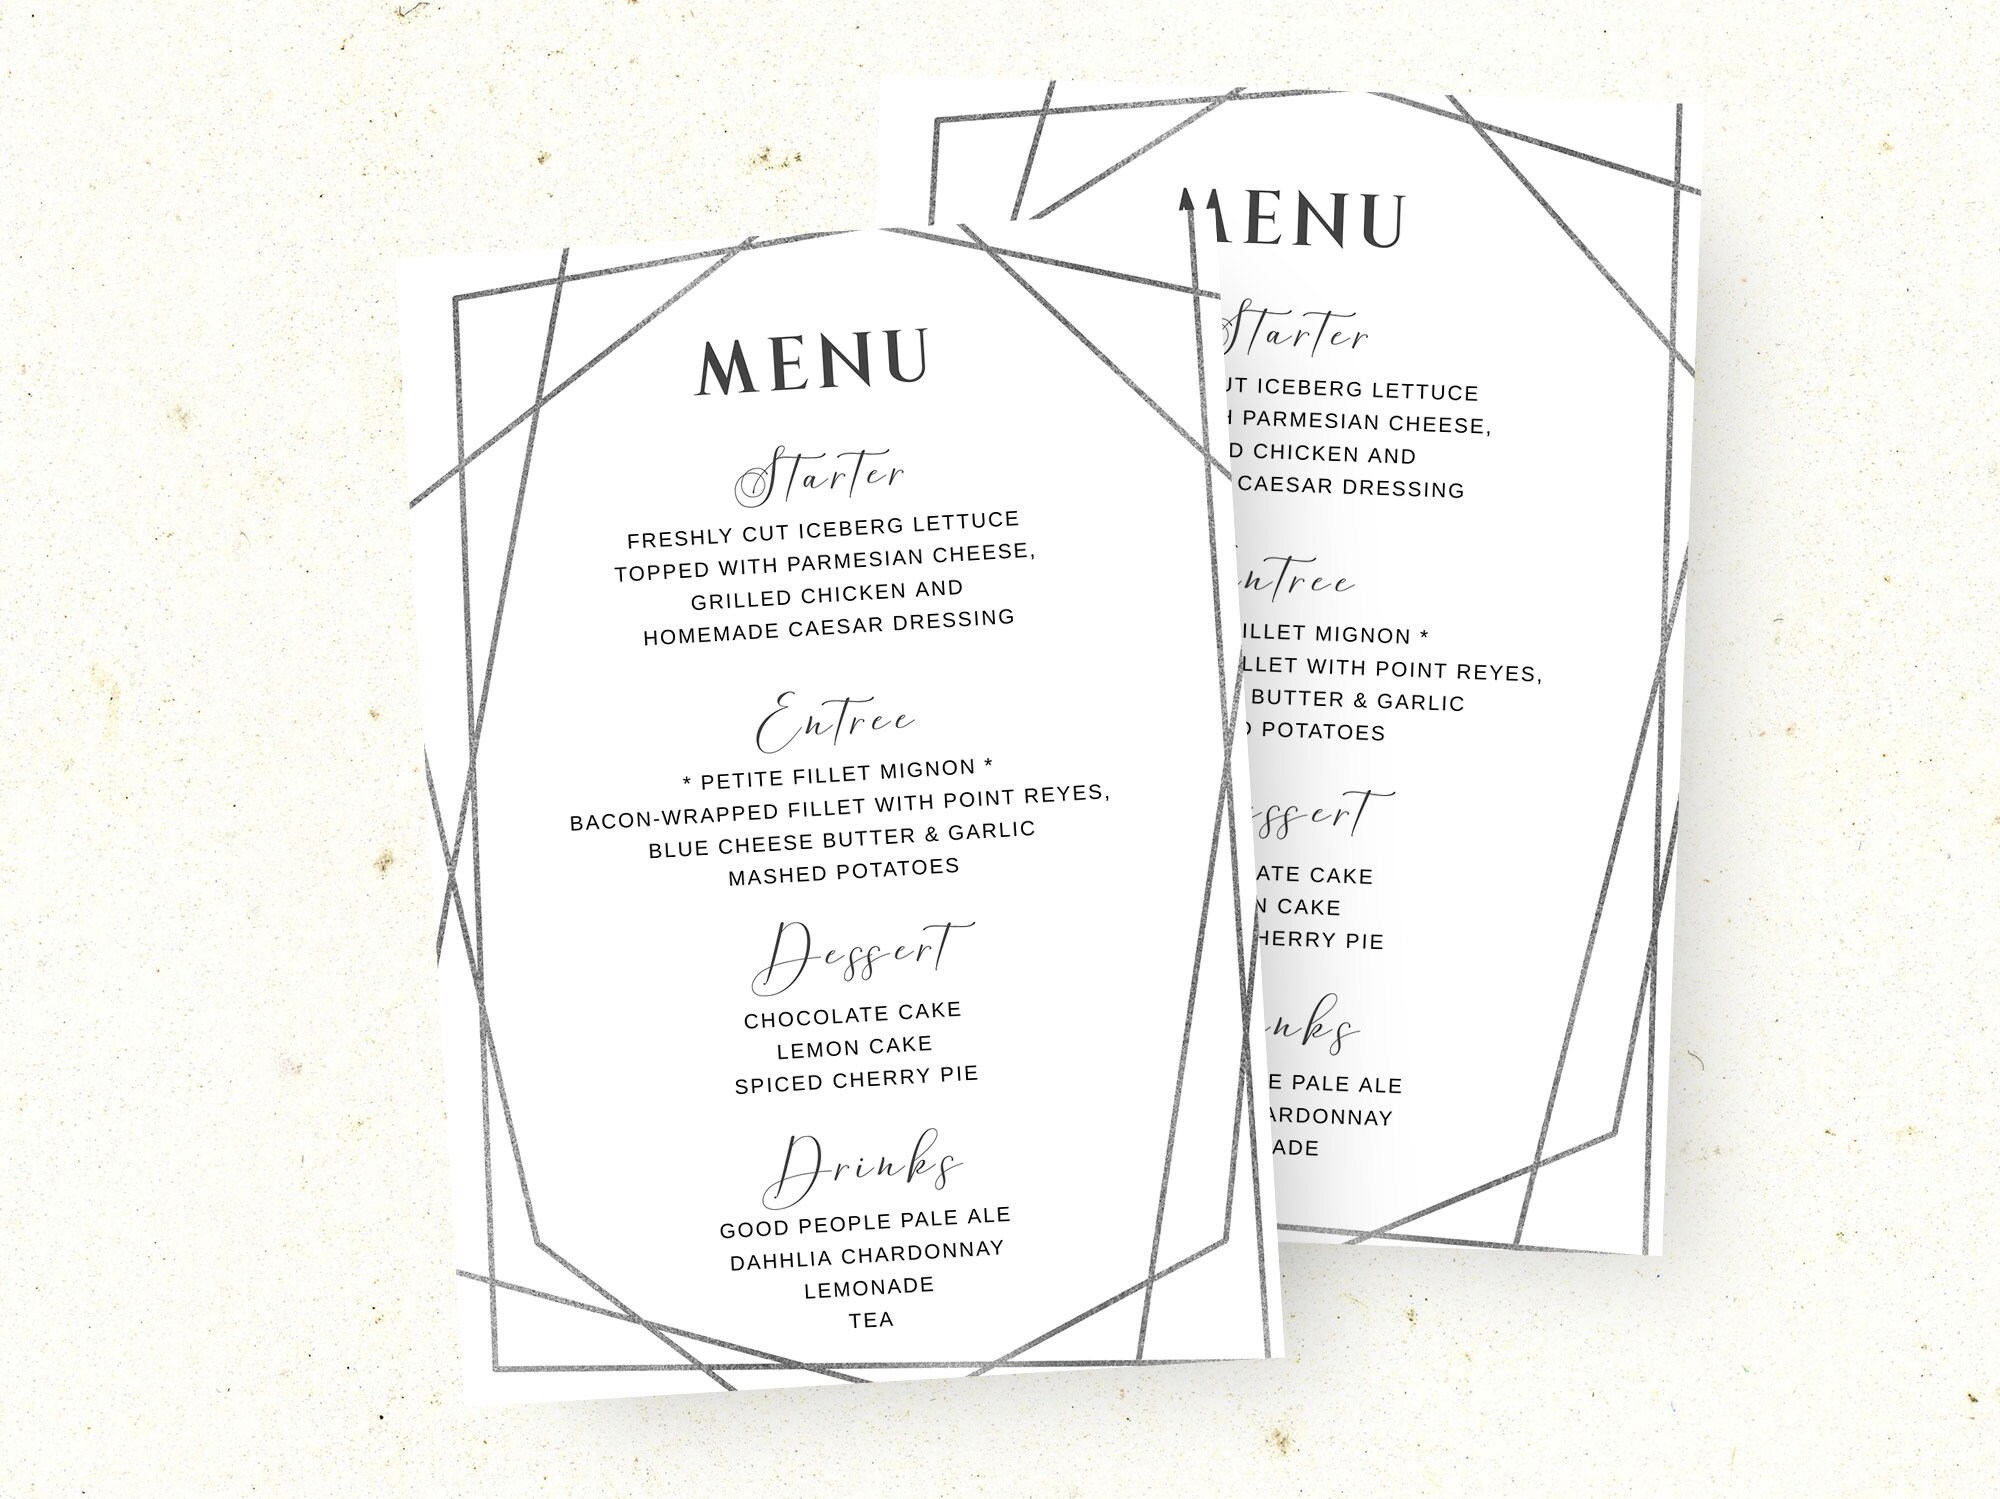 MENU
Starter
FRESHLY CUT ICEBERG LETTUCE
TOPPED WITH PARMESIAN CHEESE,
GRILLED CHICKEN AND
HOMEMADE CAESAR DRESSING
Entree
* PETITE FILLET MIGNON *
BACON-WRAPPED FILLET WITH POINT REYES,
BLUE CHEESE BUTTER & GARLIC
MASHED POTATOES
Dessert
CHOCOLATE CAKE
LEMON CAKE
SPICED CHERRY PIE
Drinks
GOOD PEOPLE PALE ALE
DAHHLIA CHARDONNAY
LEMONADE
TEA
MENU
Starter
ICEBERG LETTUCE
PARMESIAN CHEESE,
CHICKEN AND
CAESAR DRESSING
MIGNON *
WITH POINT REYES,
BUTTER & GARLIC
POTATOES
CAKE
CAKE
PIE
PALE ALE